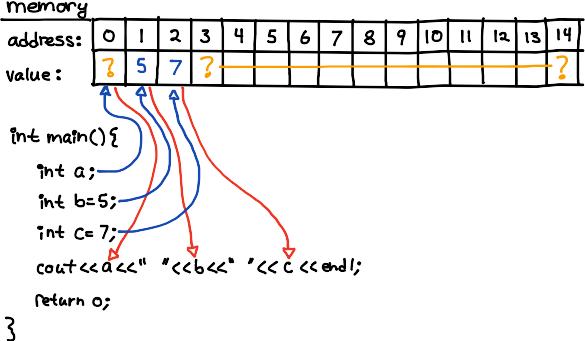 memory
address: 0 1 2 3 4 5 6 7 8 9 10 11 12 13 14
value: ? 5 7 ? ?
int main(){
int a;
int b=5;
int c=7;
cout<<a<<" "<<b<<" "<<c<<endl;
return 0;
}